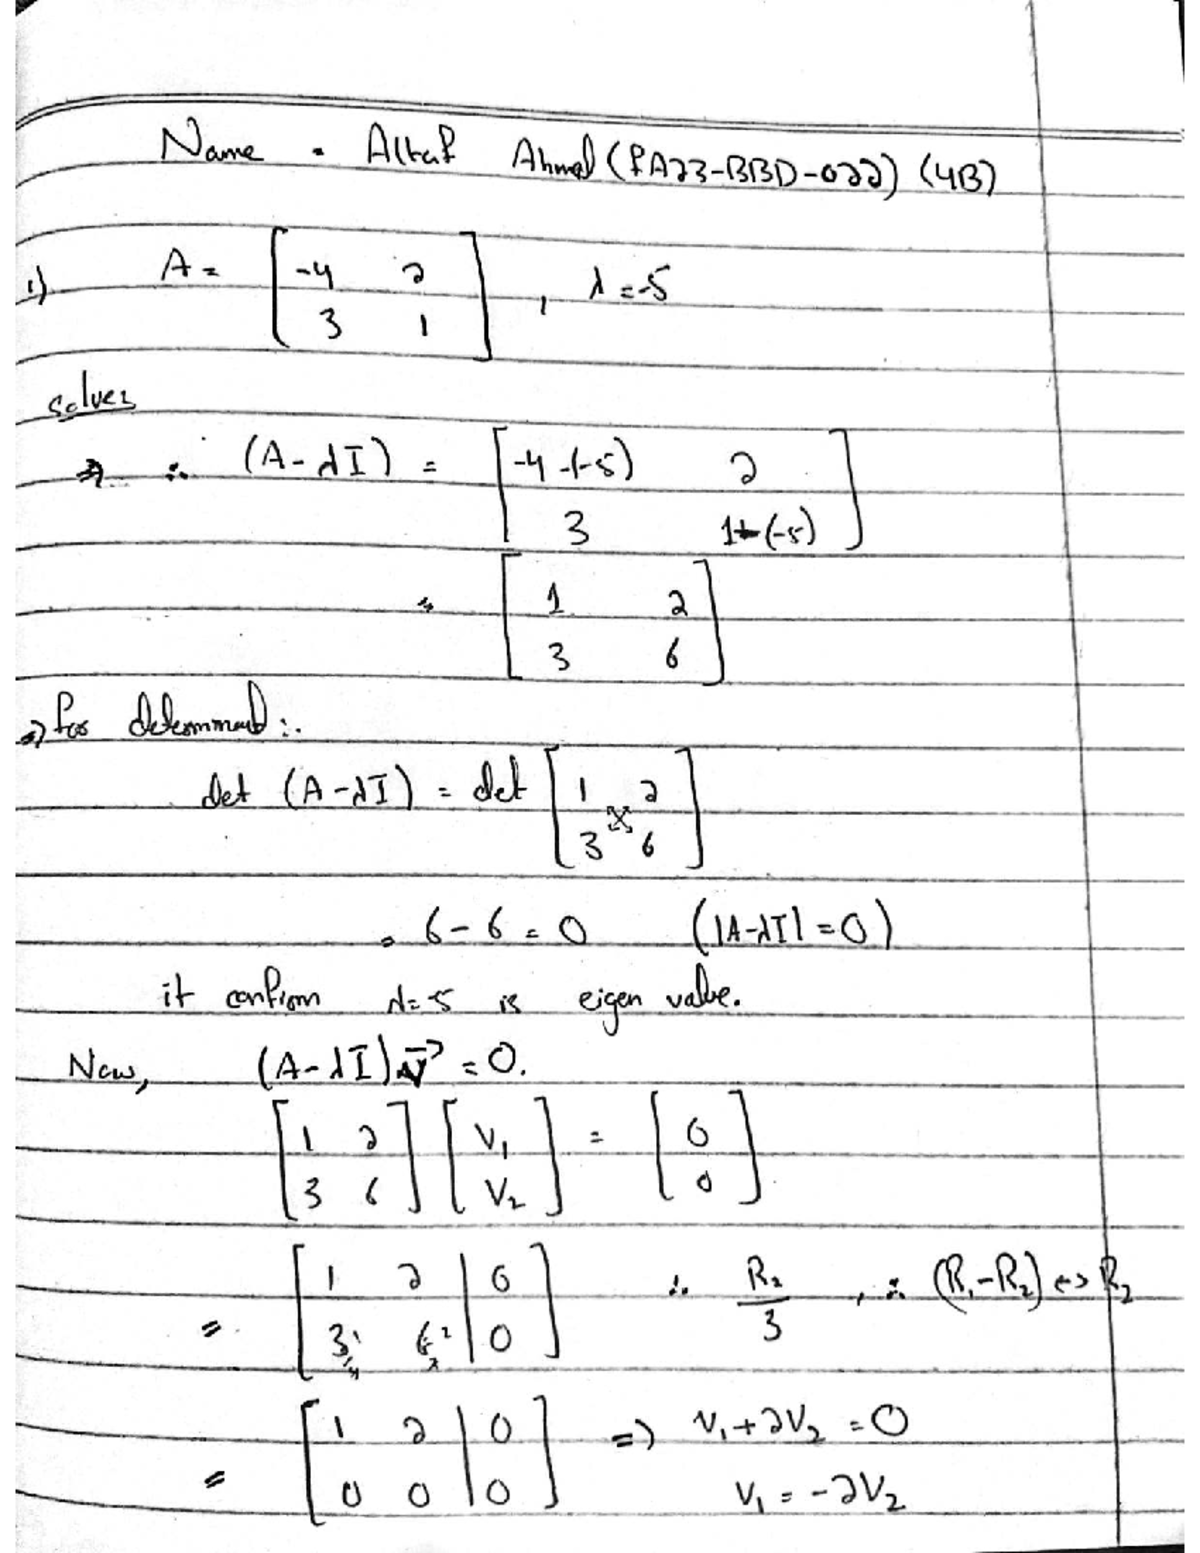 Name = Altaf Ahmed (FA23-BBD-022) (4B)
1) A = [-4 2; 3 1], λ = -5
solve:
⇒ ∴ (A - λI) = [-4-(-5) 2; 3 1-(-5)]
= [1 2; 3 6]
⇒ for determinant:.
det (A - λI) = det [1 2; 3 6]
= 6 - 6 = 0 (|A - λI| = 0)
it confirm λ = -5 is eigen value.
Now, (A - λI) v⃗ = 0.
[1 2; 3 6] [V₁; V₂] = [0; 0]
= [1 2 | 0; 3 6 | 0] ∴ R₂/3 , ∴ (R₁ - R₂) ↔ R₂
= [1 2 | 0; 0 0 | 0] ⇒ V₁ + 2V₂ = 0
V₁ = -2V₂